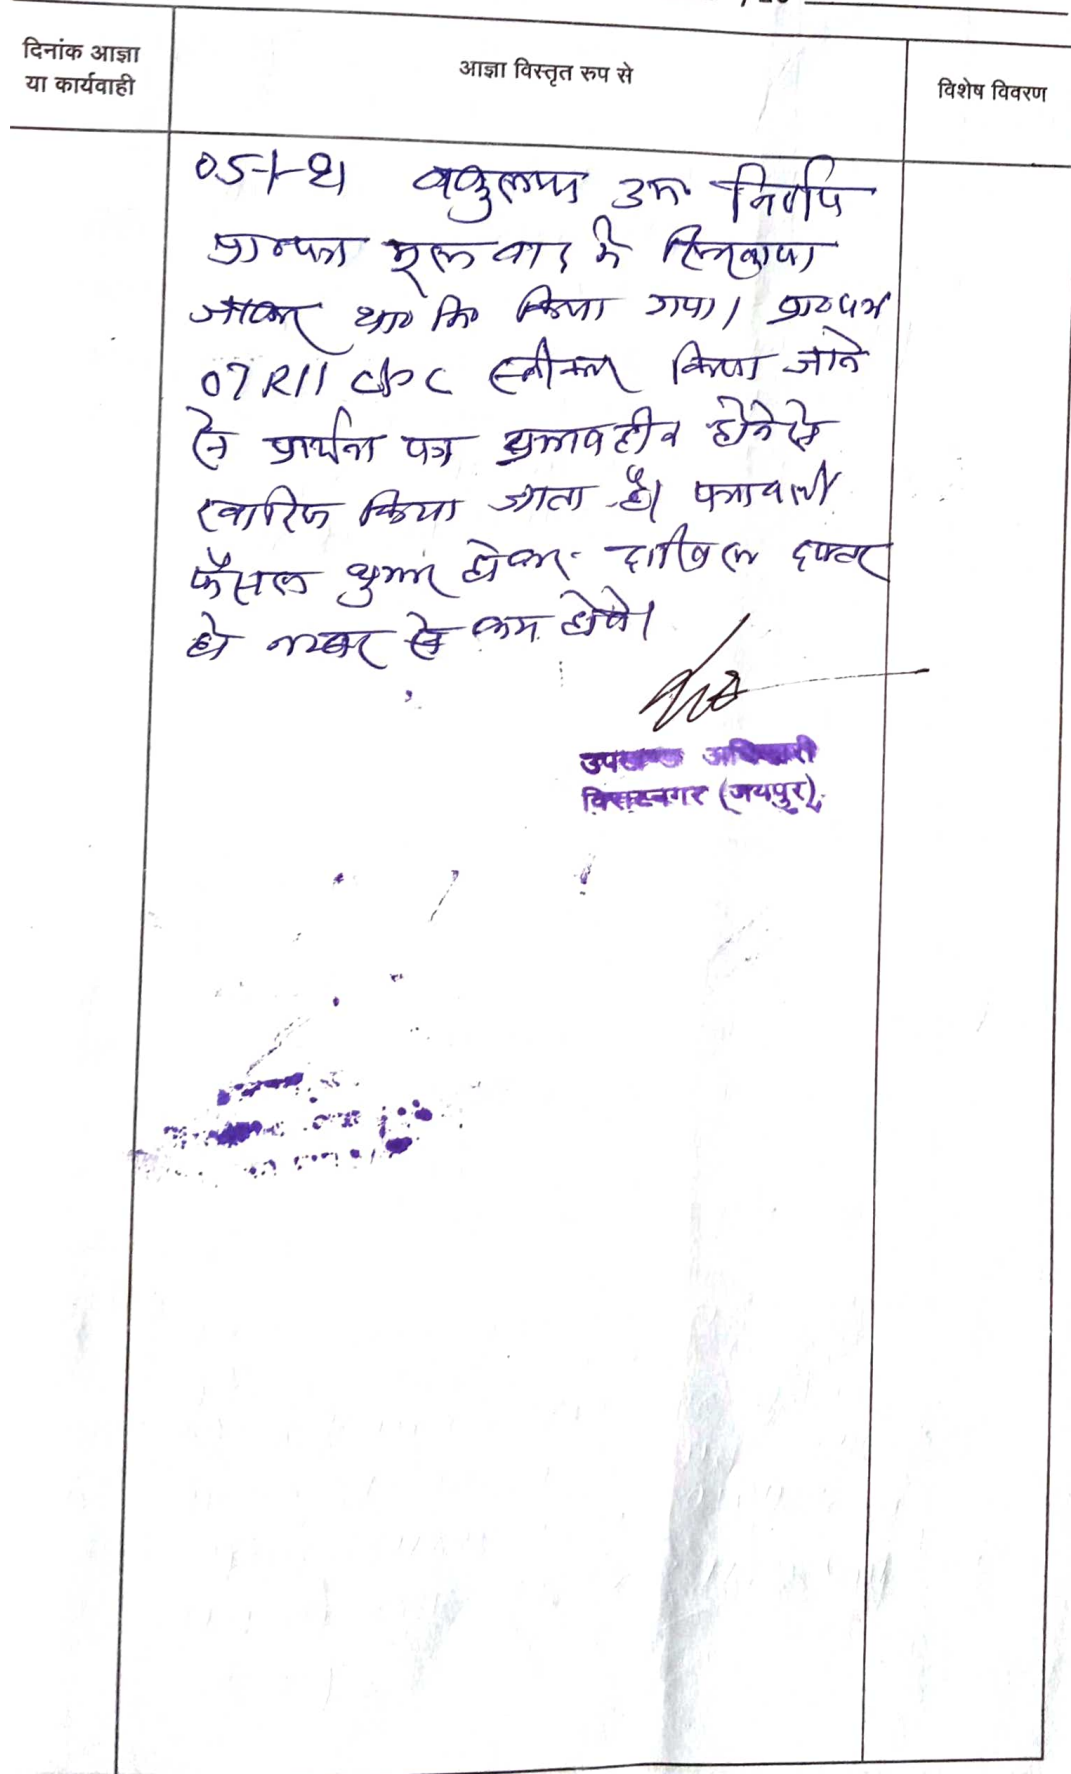 दिनांक आज्ञा
या कार्यवाही
आज्ञा विस्तृत रुप से
विशेष विवरण
05-1-21 वकुलाय उप० निर्णय
मूल वाद में लिखवाया
जाकर शा० मि० किया गया। प्रा० पत्र
07 R11 CPC स्वीकार किया जाने
से प्रार्थना पत्र प्रभावहीन होने से
खारिज किया जाता है। पत्रावली
फैसल शुमार होकर दाखिल दफ्तर
हो नम्बर से कम होवे।
उपखण्ड अधिकारी
विराटनगर (जयपुर)